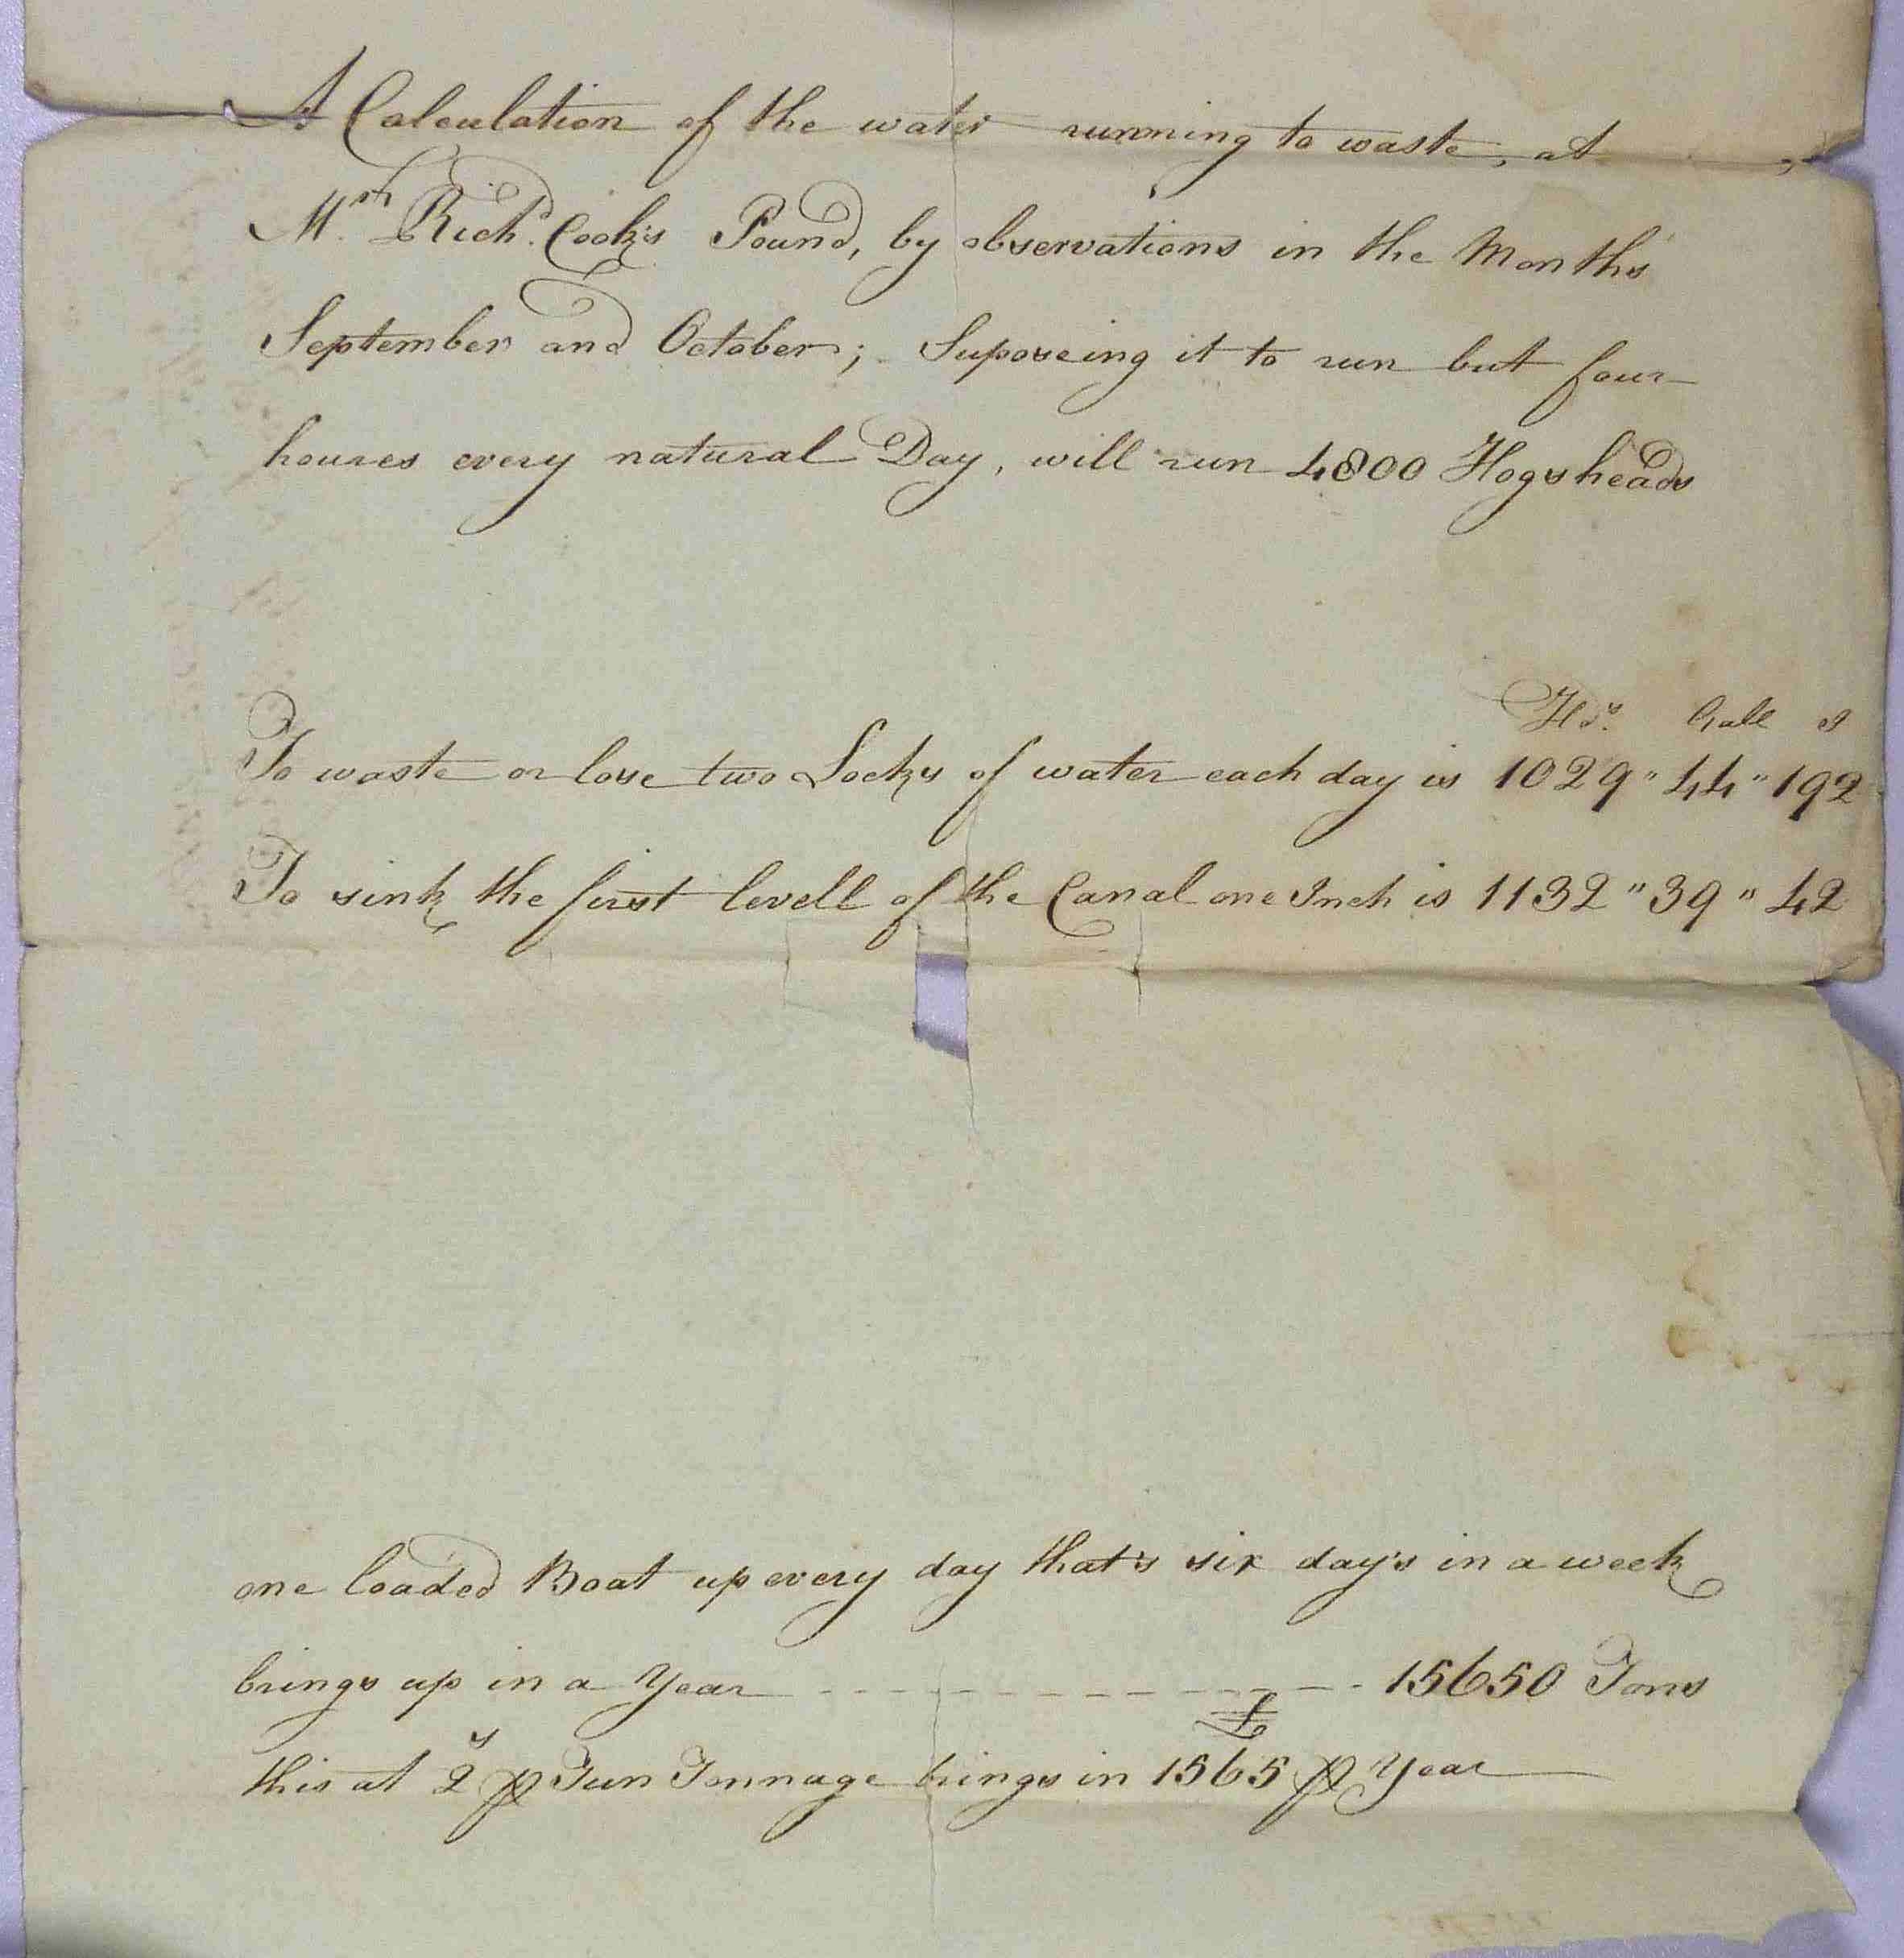 A Calculation of the water running to waste, at
Mr. Richd. Cook's Pound, by observations in the Months
September and October; Suposeing it to run but four
houres every natural Day, will run 4800 Hogsheads
Hds. Gall I
To waste or lose two Locks of water each day is 1029 " 44 " 192
To sink the first levell of the Canal one Inch is 1132 " 39 " 42
one loaded Boat up every day that's six day's in a week
brings up in a Year - - - - - - - - - - - 15650 Tons
£
this at 2s ⅌ Tun Tonnage brings in 1565 ⅌ Year